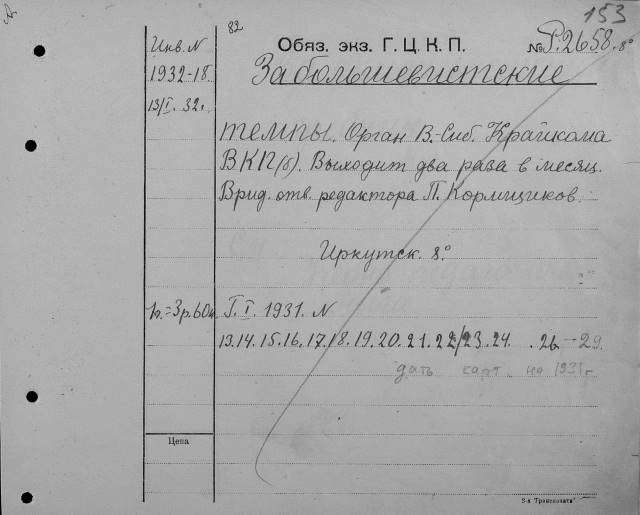 153
82
Инв. N
Обяз. экз. Г. Ц. К. П.
№ Р.2658. 8°
1932-18
За большевистские
13/I. 32г.
темпы. Орган В.-Сиб. Крайкома
ВКП(б). Выходит два раза в месяц.
Врид. отв. редактора П. Кормщиков.
Иркутск. 8°
=3р.60к
Г. I. 1931. N
13.14.15.16.17.18.19.20.21.22/23.24. .26-29.
дать карт. на 1931г
Цена
3-я "Транспечать"